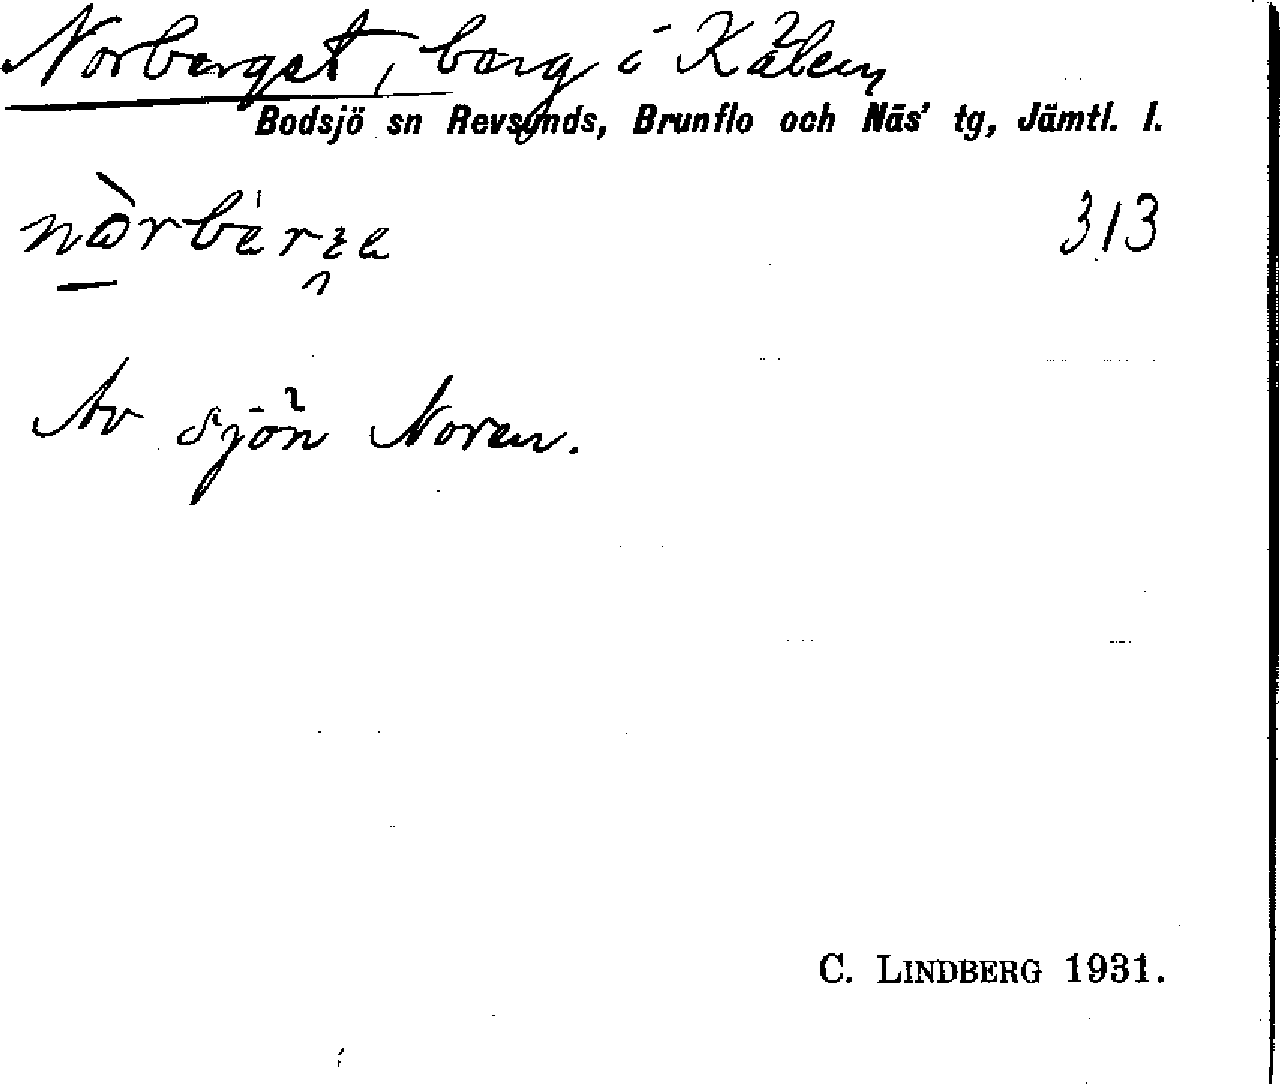 Norberget, berg i Kälen
Bodsjö sn Revsunds, Brunflo och Näs' tg, Jämtl. l.
313
Av sjön Noren.
C. LINDBERG 1931.